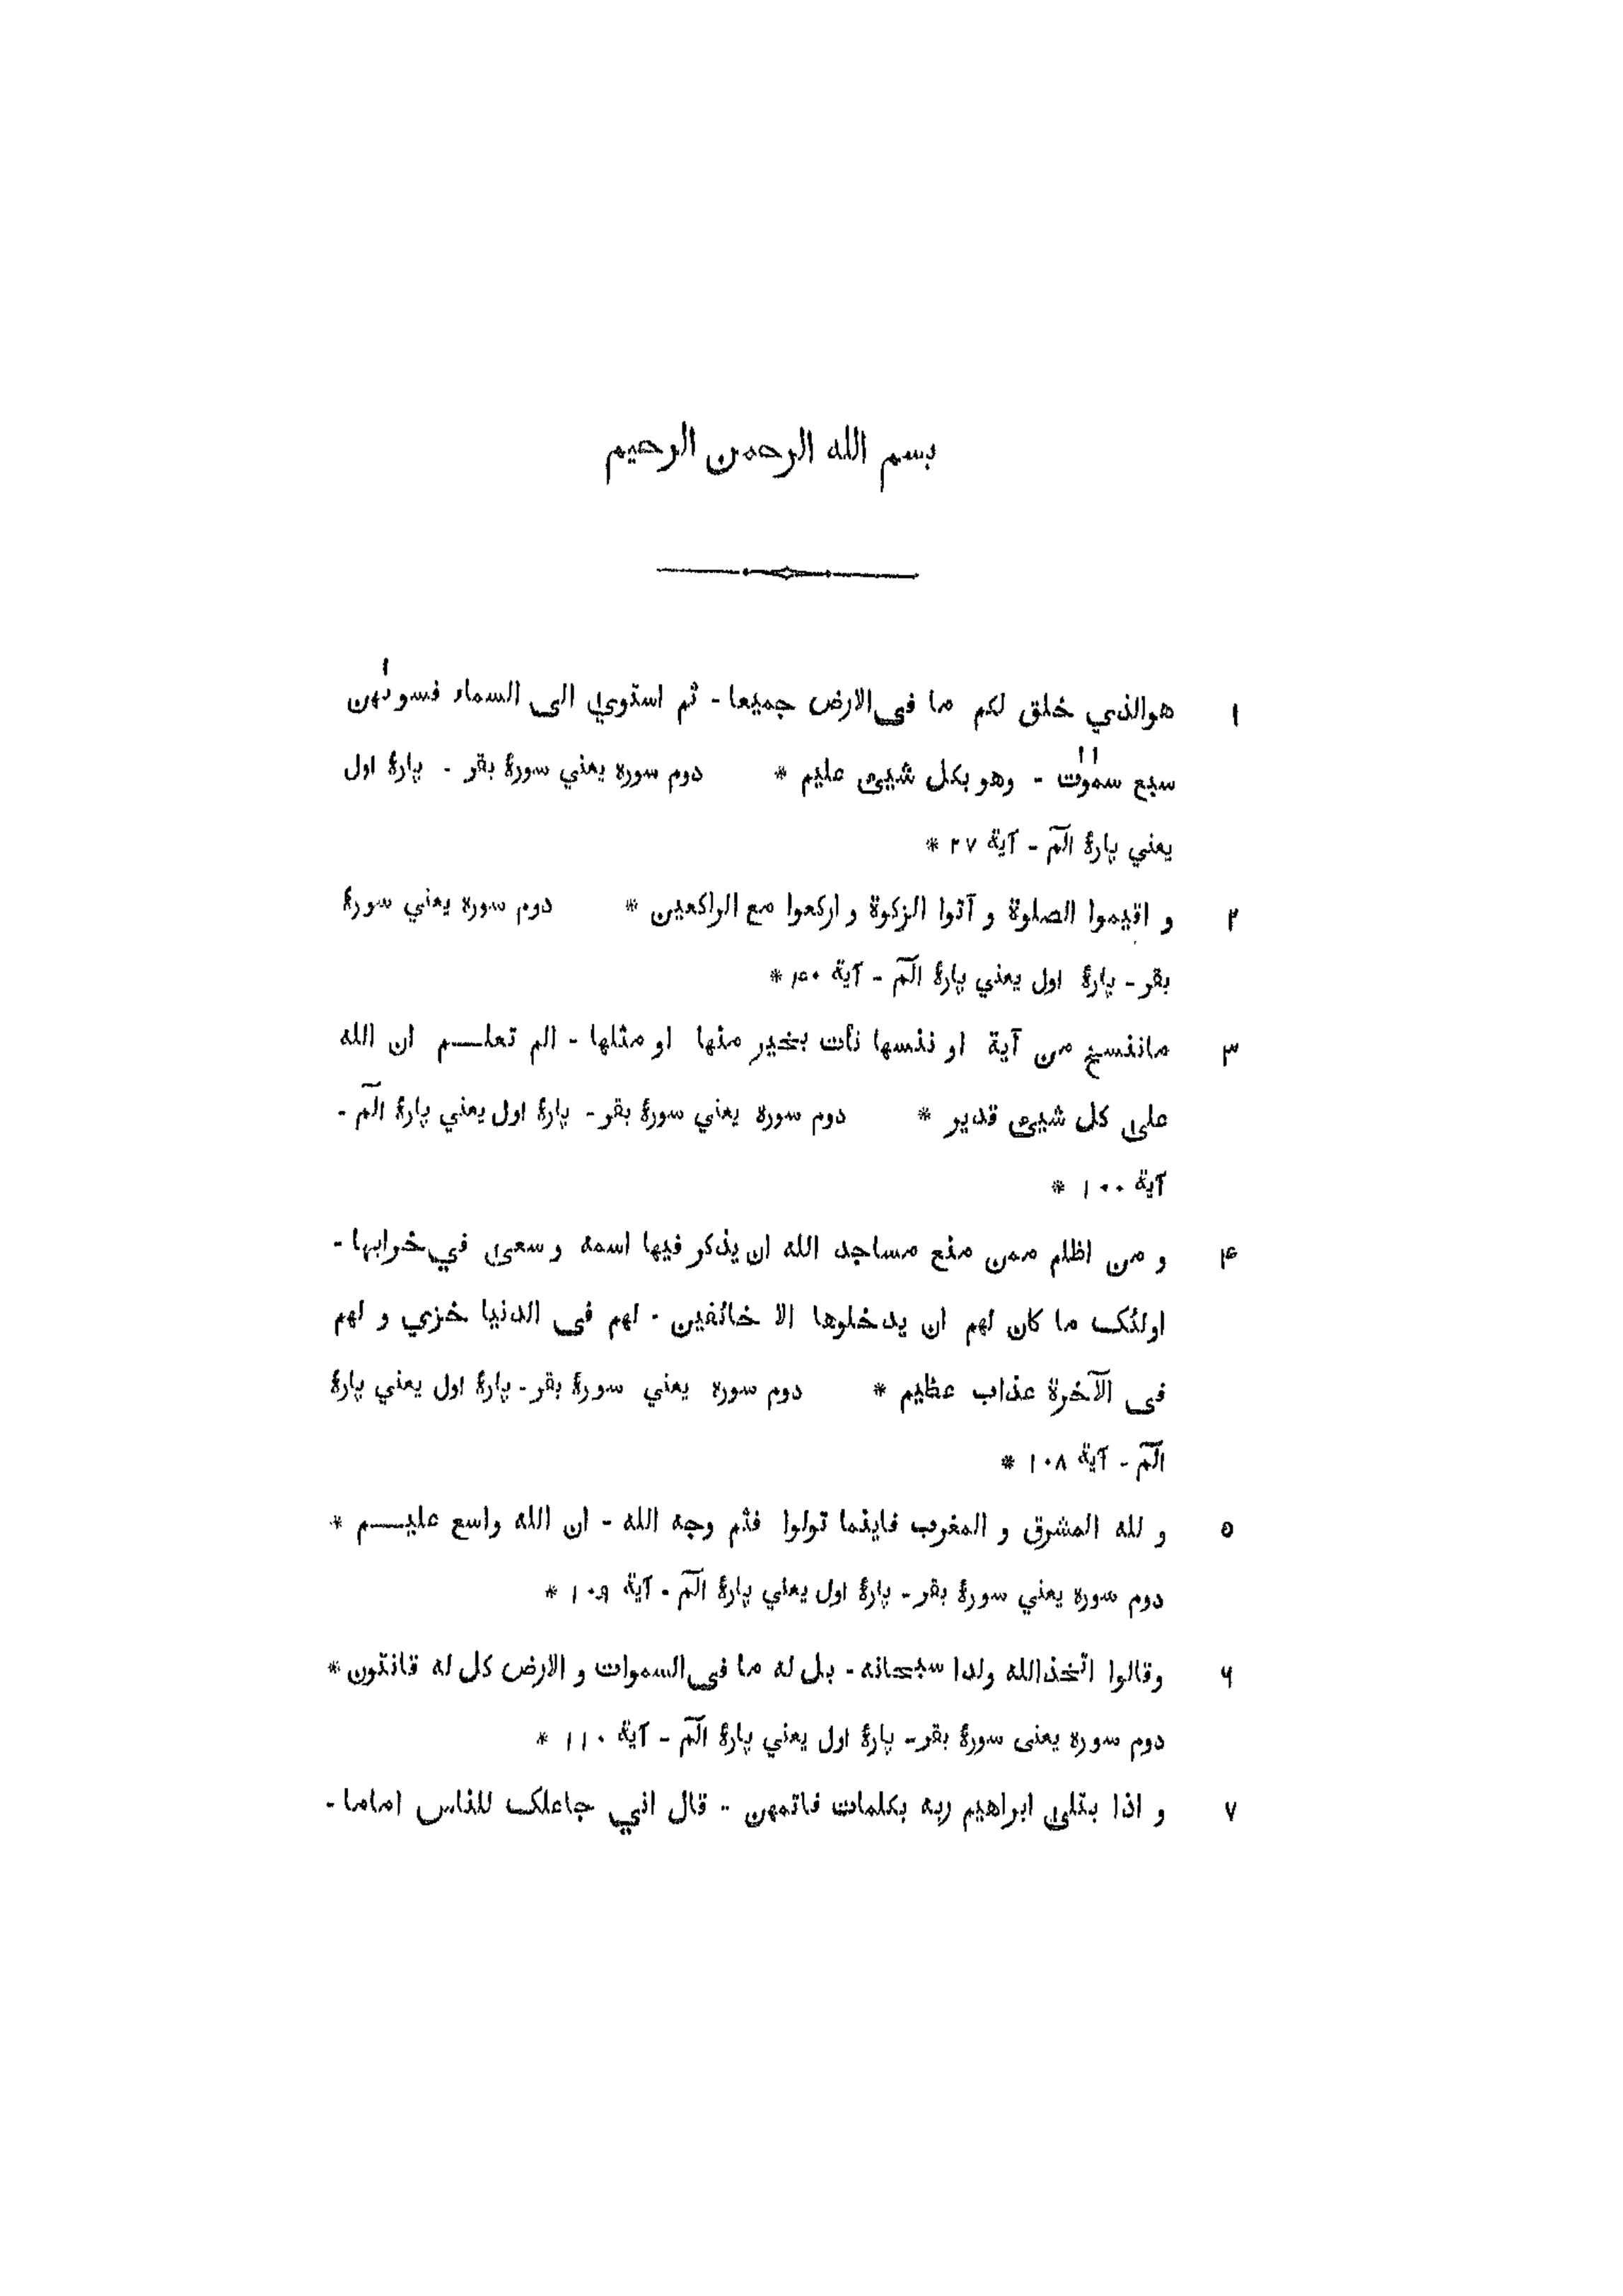 بسم الله الرحمن الرحيم
١ هوالذي خلق لكم ما فى الارض جميعا - ثم استوىٰ الى السماء فسوىٰهن
سبع سمٰوٰت - وهو بكل شيىء عليم * دوم سوره يعني سورۀ بقر - پارۀ اول
يعني پارۀ الٓم - آية ٢٧ *
٢ و اقيموا الصلوة و آتوا الزكوة و اركعوا مع الراكعين * دوم سوره يعني سورۀ
بقر - پارۀ اول يعني پارۀ الٓم - آية ۴٠ *
٣ ماننسخ من آية او ننسها نأت بخير منها او مثلها - الم تعلـــم ان الله
علىٰ كل شيىء قدير * دوم سوره يعني سورۀ بقر - پارۀ اول يعني پارۀ الٓم -
آية ١٠٠ *
۴ و من اظلم ممن منع مساجد الله ان يذكر فيها اسمه و سعىٰ في خرابها -
اولئک ما كان لهم ان يدخلوها الا خائفين - لهم فى الدنيا خزي و لهم
فى الآخرة عذاب عظيم * دوم سوره يعني سورۀ بقر - پارۀ اول يعني پارۀ
الٓم - آية ١٠٨ *
٥ و لله المشرق و المغرب فاينما تولوا فثم وجه الله - ان الله واسع عليـــم *
دوم سوره يعني سورۀ بقر - پارۀ اول يعني پارۀ الٓم - آية ١٠٩ *
۶ وقالوا اتخذالله ولدا سبحانه - بل له ما فى السموات و الارض كل له قانتون *
دوم سوره يعنى سورۀ بقر - پارۀ اول يعني پارۀ الٓم - آية ١١٠ *
٧ و اذا بتلىٰ ابراهيم ربه بكلمات فاتمهن - قال اني جاعلک للناس اماما -